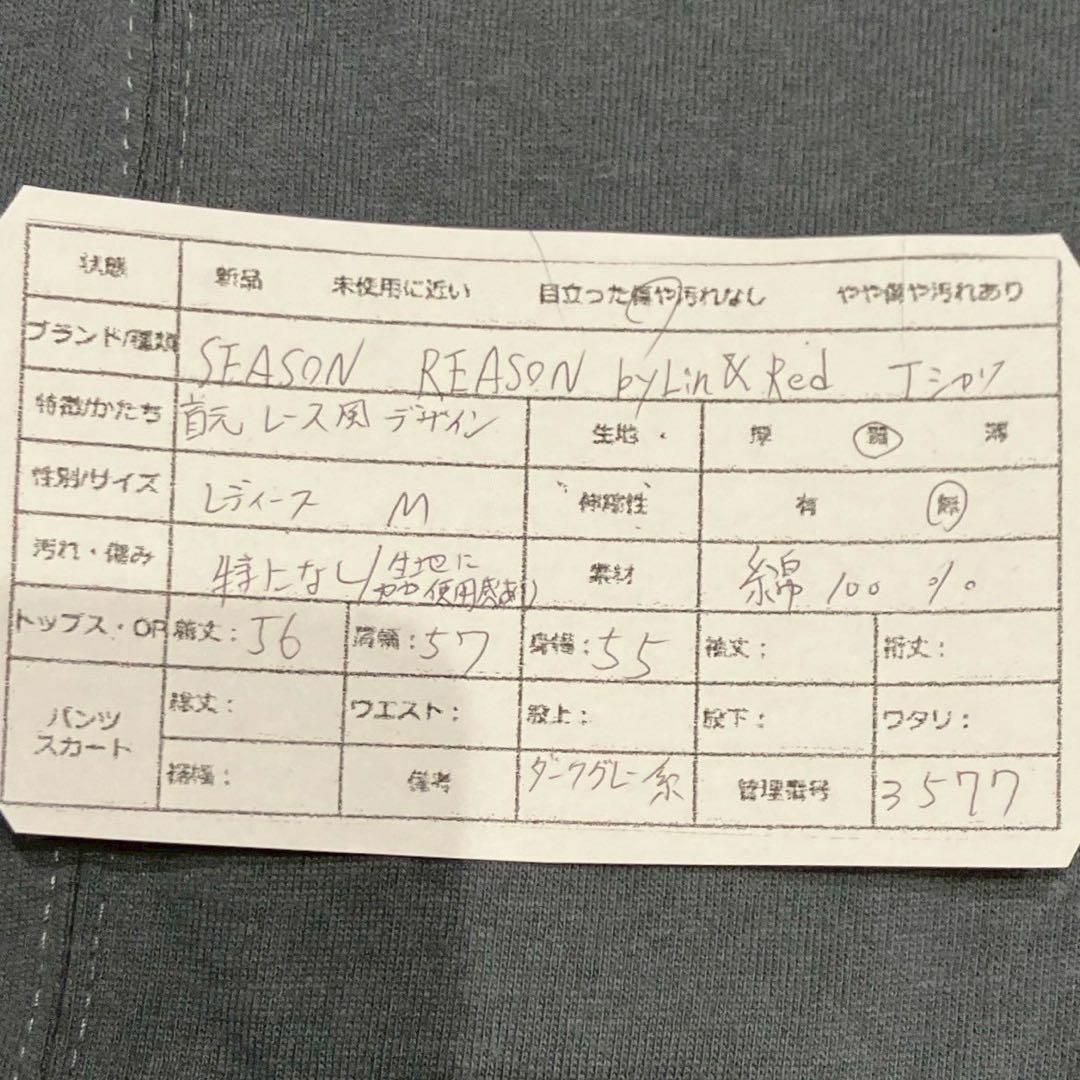 状態 新品 未使用に近い 目立った傷や汚れなし やや傷や汚れあり
ブランド/種類 SEASON REASON by Lin & Red Tシャツ
特徴/かたち 首元 レース風 デザイン 生地 厚 普 薄
性別/サイズ レディース M 伸縮性 有 無
汚れ・傷み 特になし/生地に
やや使用感あり
素材 綿 100 %
トップス・OP 着丈: 56 肩幅: 57 身幅: 55 袖丈: 裄丈:
パンツ
スカート
総丈: ウエスト: 股上: 股下: ワタリ:
裾幅: 備考 ダークグレー系 管理番号 3577